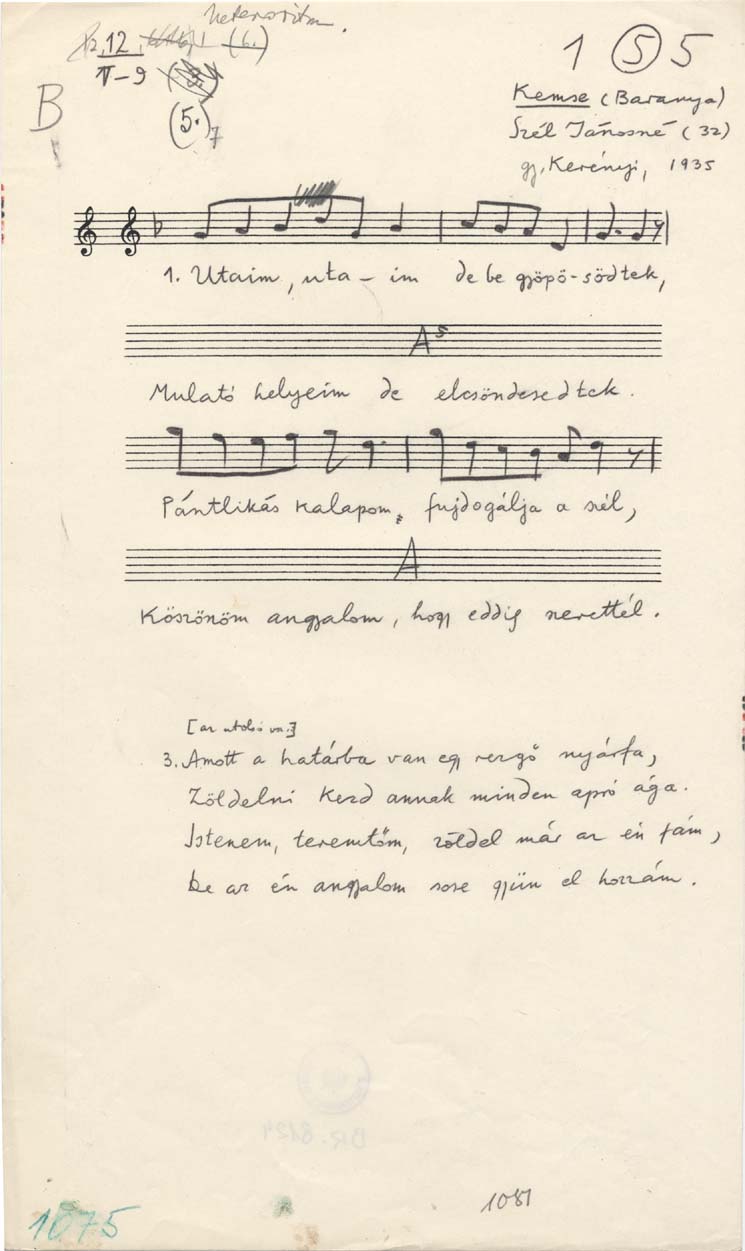 heterositm.
12, 12, (6.)
V–9
(5.)7
B
1 (5) 5
Kemse (Baranya)
Szél Jánosné (32)
gy. Kerényi, 1935
1. Utaim, uta – im de be gyöpö-södtek,
A5
Mulató helyeim de elcsöndesedtek.
Pántlikás kalapom, fujdogálja a szél,
A
Köszönöm angyalom, hogy eddig szerettél.
[az utolsó vsz.]
3. Amott a határba van egy rezgő nyárfa,
Zöldelni kezd annak minden apró ága.
Istenem, teremtőm, zöldel már az én fám,
De az én angyalom sose gyün el hozzám.
BR. 8124
1081
1075